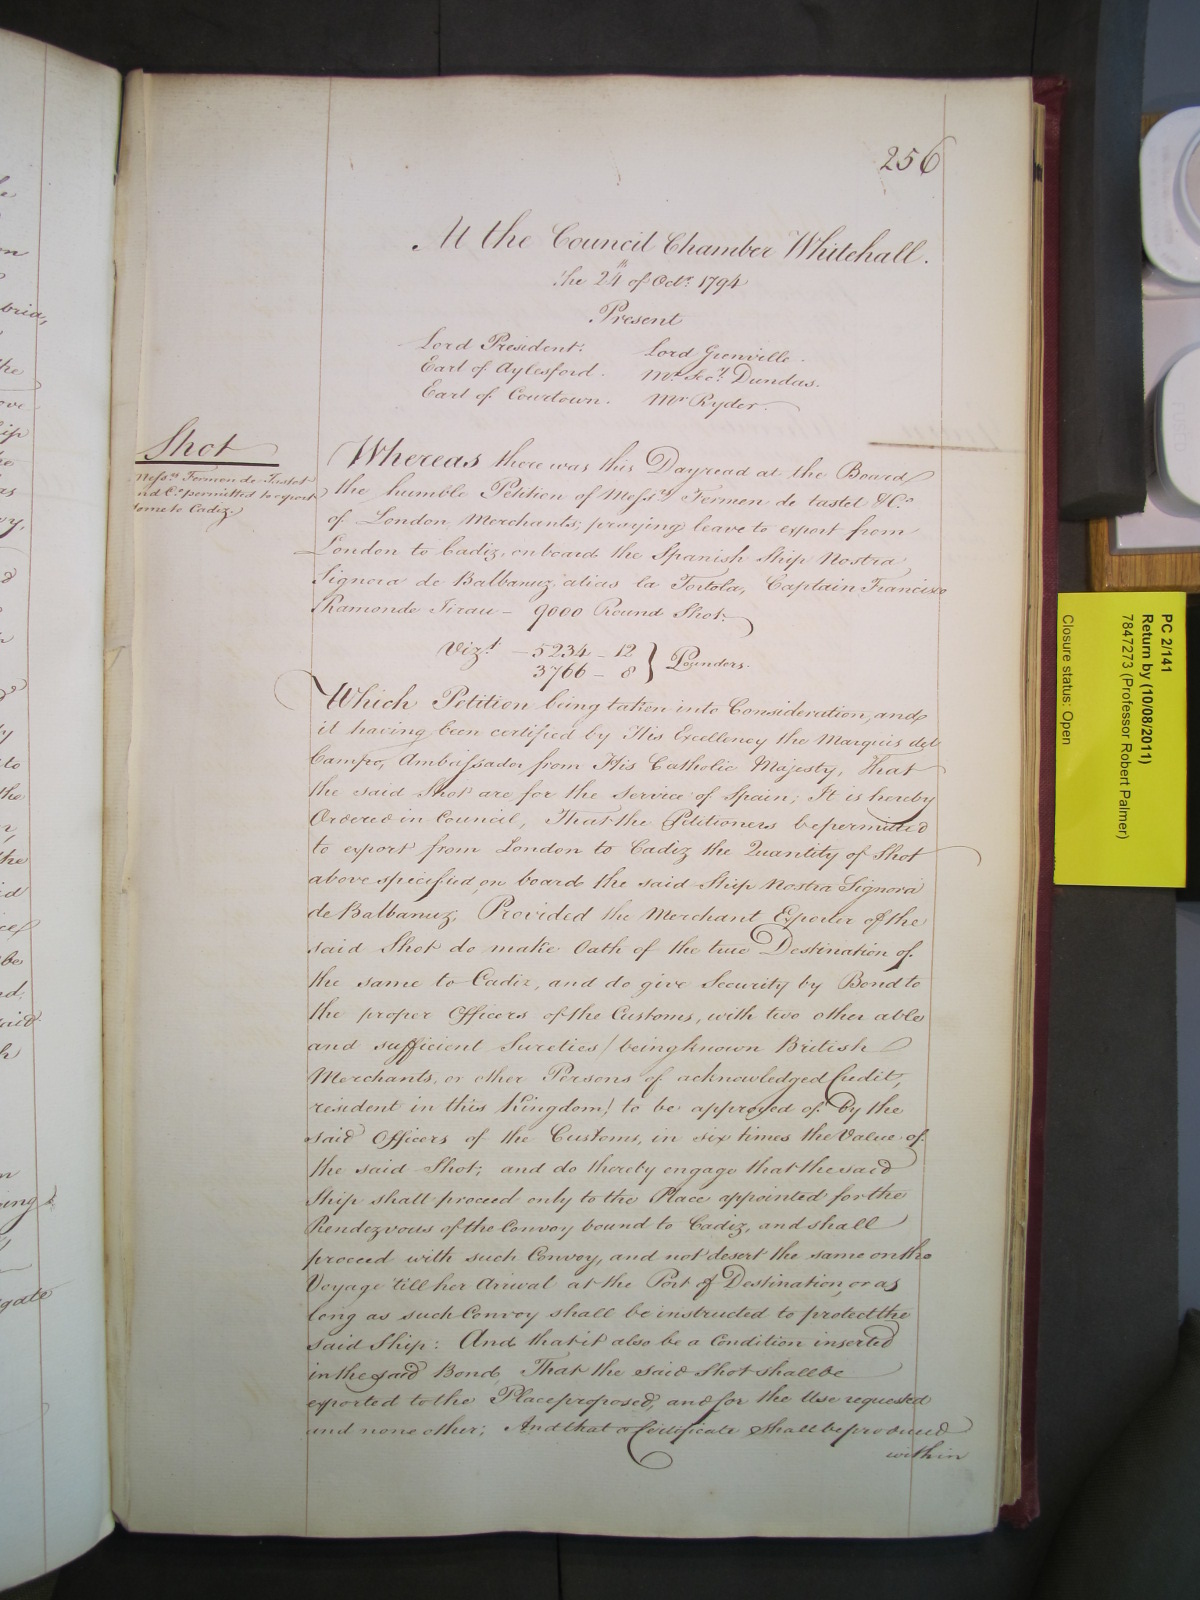 256
At the Council Chamber Whitehall.
the 24th of Octr. 1794
Present
Lord President. Lord Grenville.
Earl of Aylesford. Mr. Secy. Dundas.
Earl of Courtown. Mr Ryder.
Shot
Messrs. Fermen de Tastet
and Co. permitted to export
some to Cadiz.
Whereas there was this Day read at the Board
the humble Petition of Messrs. Fermen de tastet & Co.
of London Merchants, praying leave to export from
London to Cadiz, on board the Spanish Ship Nostra
Signora de Balbanuz, alias la Tortola, Captain Francisco
Ramonde Tirau — 9000 Round Shot.
Vizt. — 5234 — 12
3766 — 8 } Pounders.
Which Petition being taken into Consideration, and
it having been certified by His Excellency the Marquis del
Campo, Ambassador from His Catholic Majesty, That
the said Shot are for the Service of Spain; It is hereby
Ordered in Council, That the Petitioners be permitted
to export from London to Cadiz the Quantity of Shot
above specified, on board the said Ship Nostra Signora
de Balbanuz, Provided the Merchant Exporter of the
said Shot do make Oath of the true Destination of
the same to Cadiz, and do give Security by Bond to
the proper Officers of the Customs, with two other able
and sufficient Sureties / being known British
Merchants, or other Persons of acknowledged Credit,
resident in this Kingdom / to be approved of by the
said Officers of the Customs, in six times the Value of
the said Shot; and do thereby engage that the said
Ship shall proceed only to the Place appointed for the
Rendezvous of the Convoy bound to Cadiz, and shall
proceed with such Convoy, and not desert the same on the
Voyage till her Arrival at the Port of Destination, or as
long as such Convoy shall be instructed to protect the
said Ship: And that it also be a Condition inserted
in the said Bond, That the said Shot shall be
exported to the Place proposed, and for the Use requested
and none other; And that a Certificate shall be produced
within
PC 2/141
Return by (10/08/2011)
7847273 (Professor Robert Palmer)
Closure status: Open